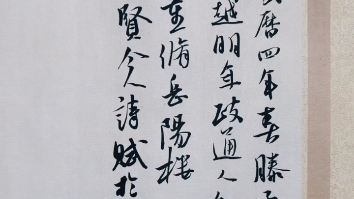 曆四年春滕子
越明年政通人
重脩岳陽樓
賢今人詩賦於